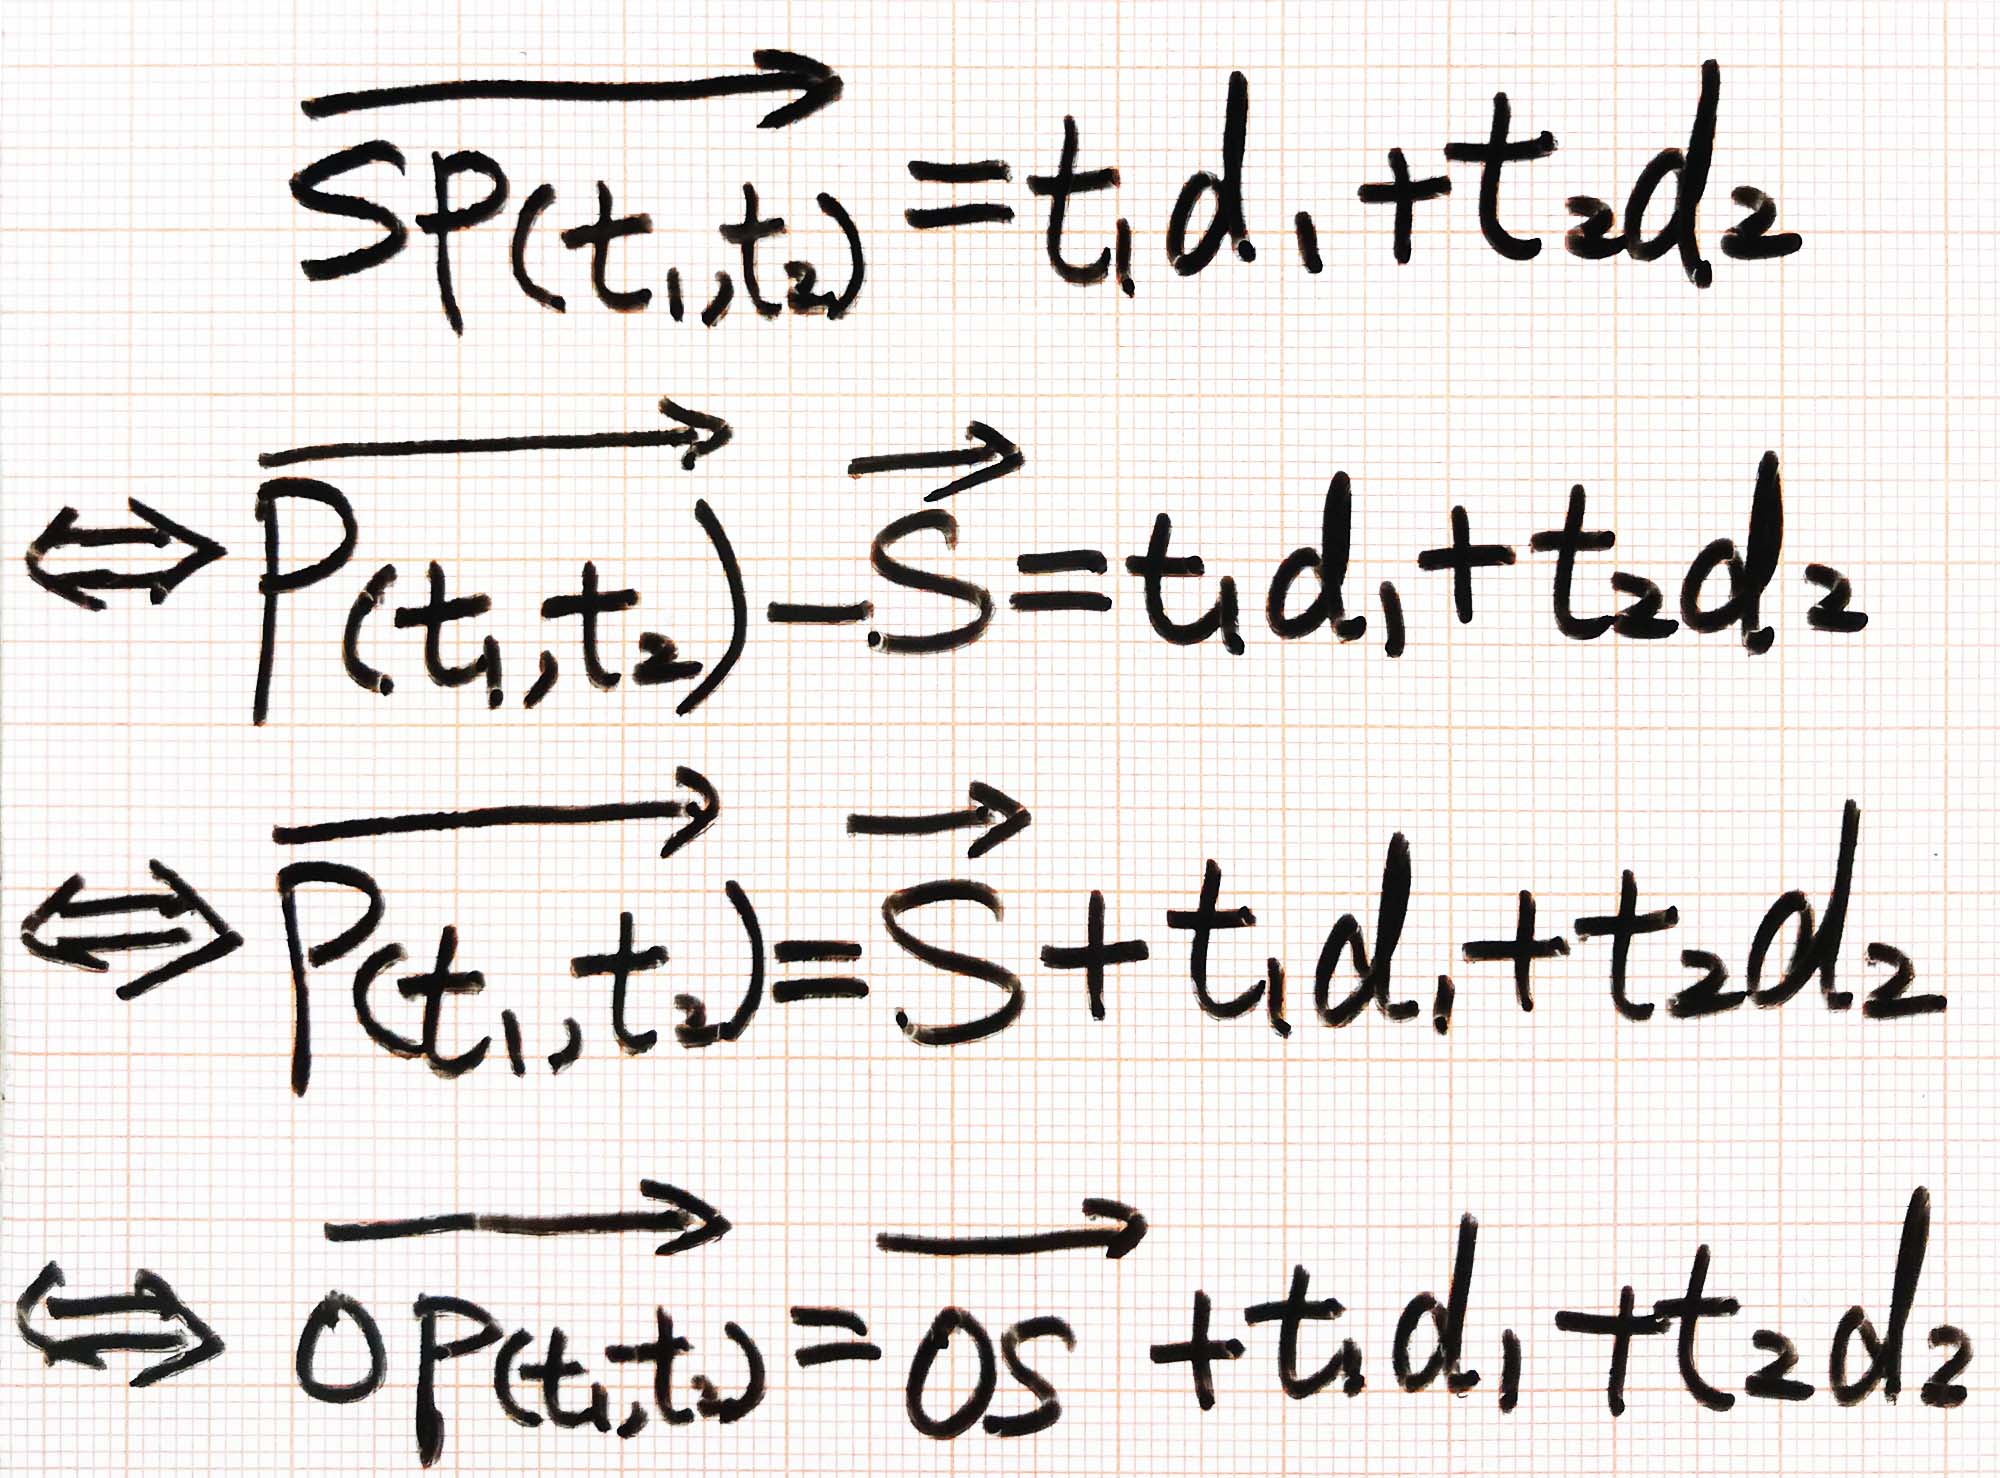 $\overrightarrow{SP(t_1,t_2)} = t_1 d_1 + t_2 d_2$
$\Leftrightarrow \overrightarrow{P(t_1,t_2)} - \overrightarrow{S} = t_1 d_1 + t_2 d_2$
$\Leftrightarrow \overrightarrow{P(t_1,t_2)} = \overrightarrow{S} + t_1 d_1 + t_2 d_2$
$\Leftrightarrow \overrightarrow{OP(t_1,t_2)} = \overrightarrow{OS} + t_1 d_1 + t_2 d_2$